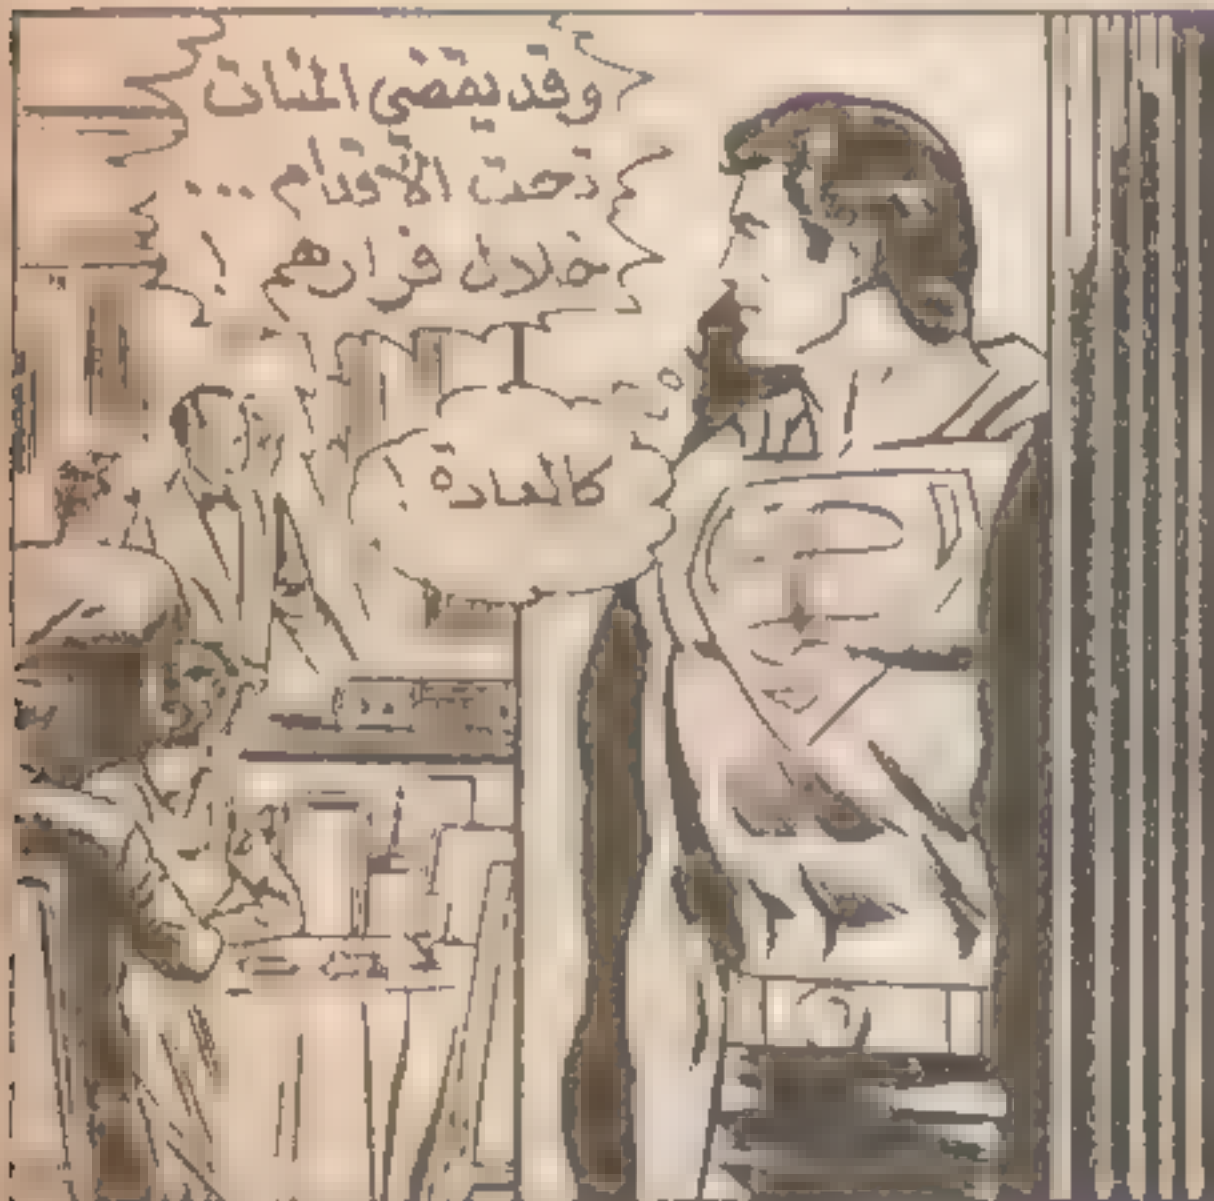 وقد يقضي المئات
تحت الأقدام ...
خلال فرارهم !
كالعادة